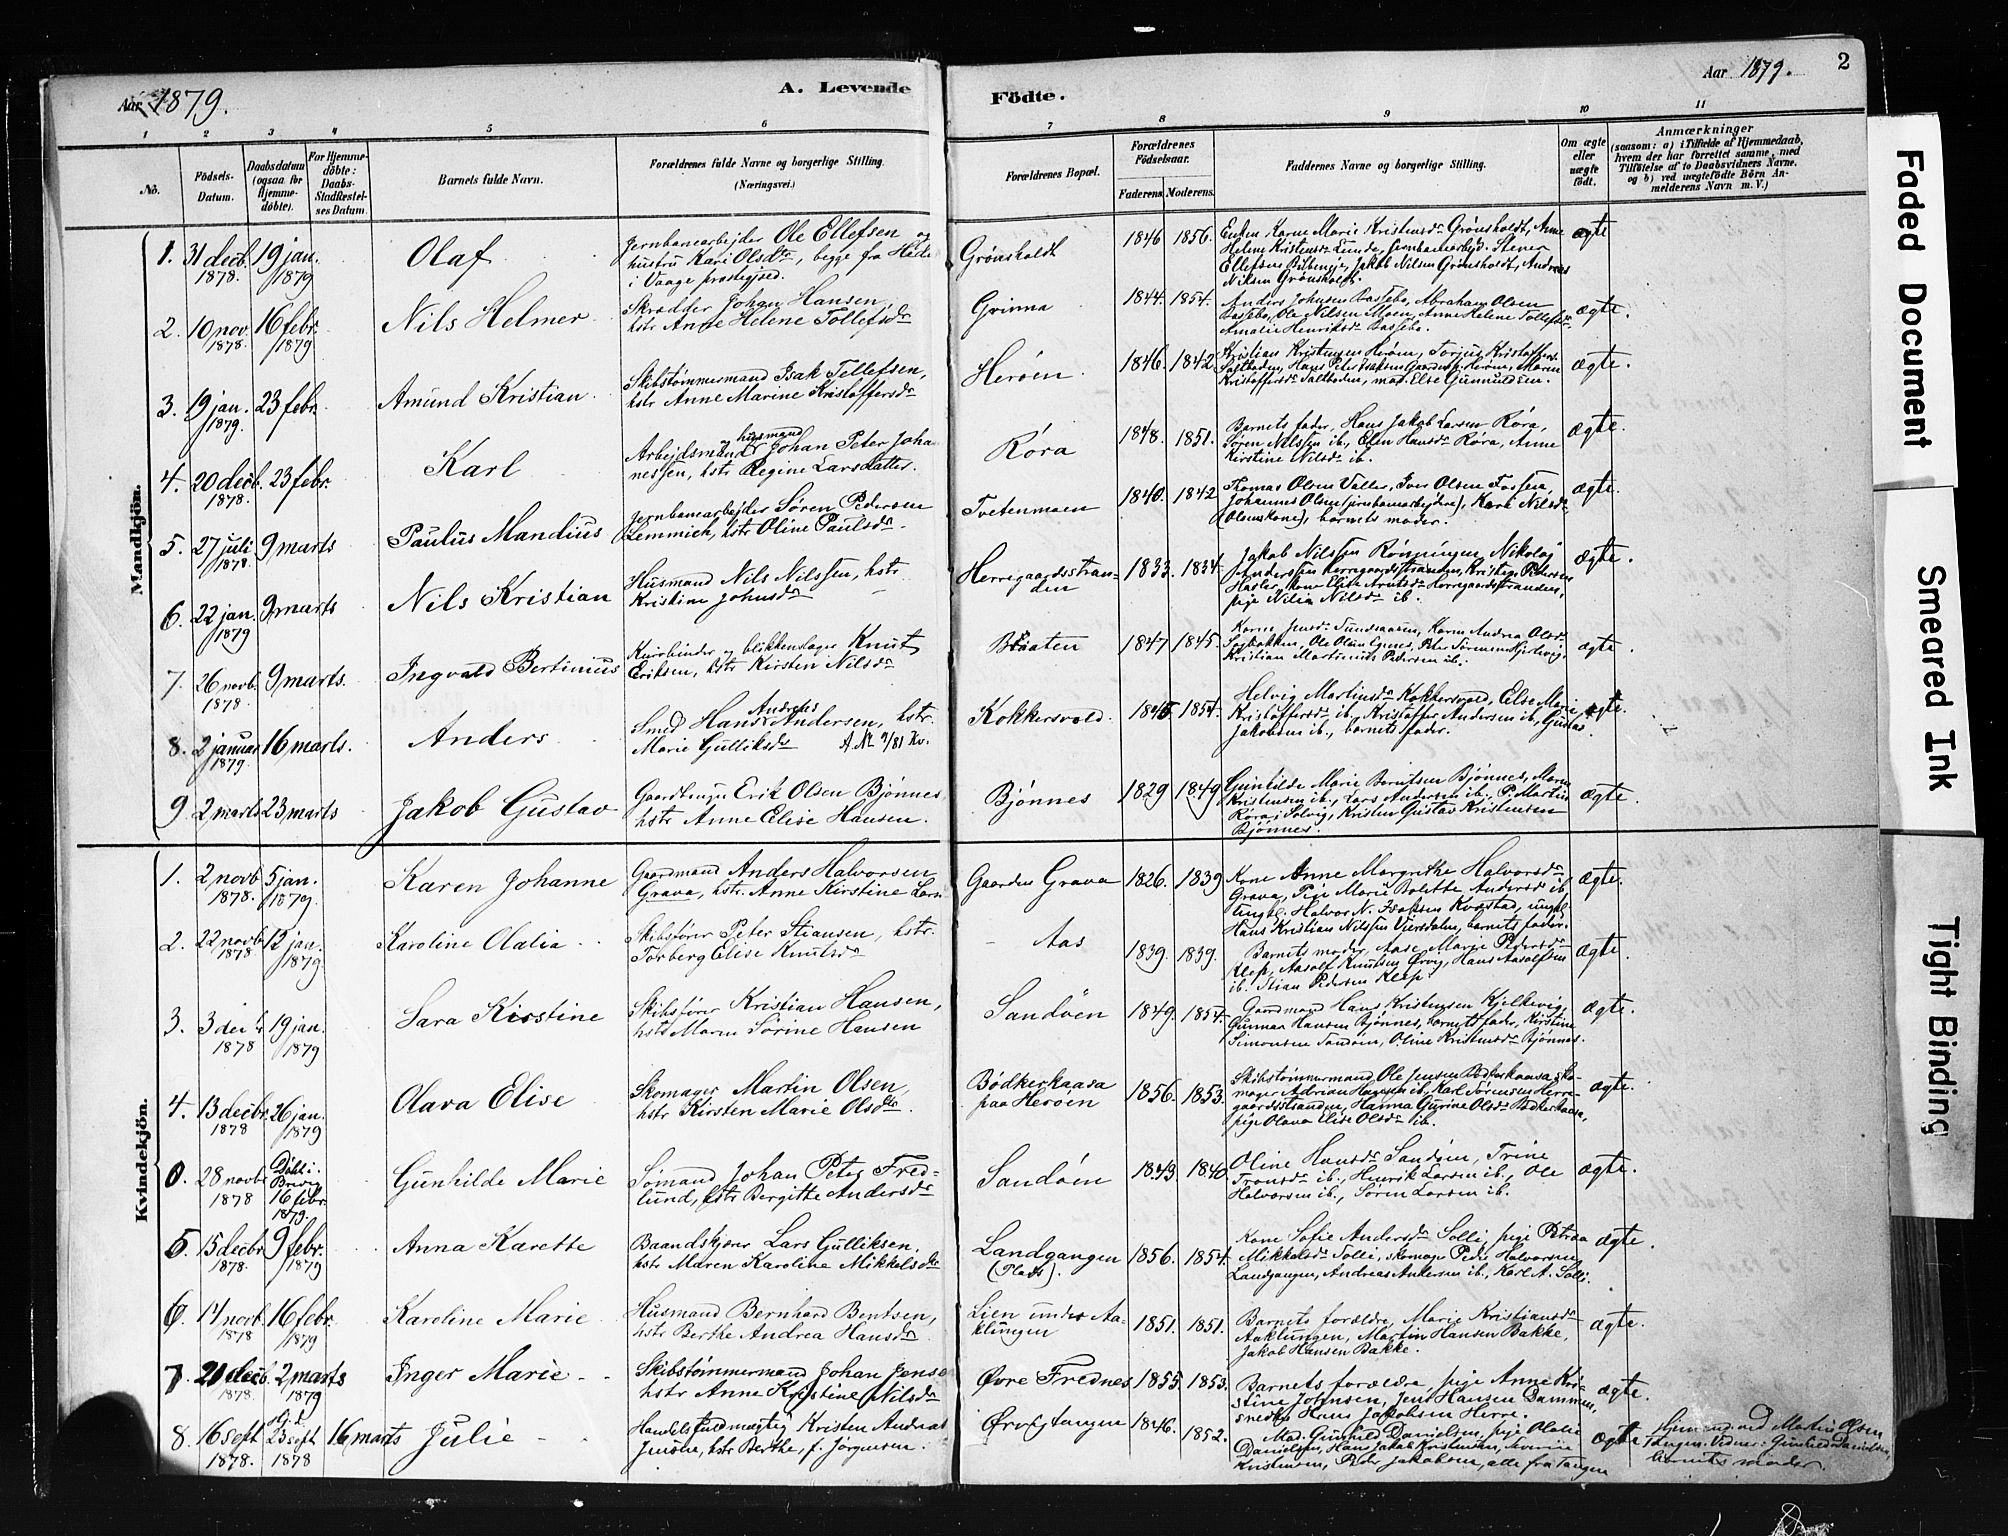 Aar 1879.
A. Levende
Födte.
Aar 1879.
2
1 2 3 4 5 6 7 8 9 10 11
No.
Födsels-
Datum.
Daabsdatum
(ogsaa for
Hjemme-
döbte).
For Hjemme-
döbte:
Daabs-
Stadfæstel-
ses Datum
Barnets fulde Navn.
Forældrenes fulde Navne og borgerlige Stilling.
(Næringsvei.)
Forældrenes Bopæl.
Forældrenes
Födselsaar.
Faderens Moderens.
Faddernes Navne og borgerlige Stilling.
Om ægte
eller
uægte
födt.
Anmærkninger
(saasom: a) i Tilfælde af Hjemmedaab,
hvem der har forrettet samme, med
Tilföielse af to Daabsvidners Navne,
og b) ved uægtefödte Börn An-
melderens Navn m. V.)
Mandkjön.
1. 31 decb. 1878. 19 jan. 1879 Olaf
Jernbanearbejder Ole Ellefsen og
hustru Kari Olsdtr, begge fra Hede
i Vaage prestegjæld.
Grönsholdt 1846 1856.
Helene Kristensdr Lunde, jernbanearbejd. Stener
Ellefsen Jakob Nilsen Grönsholdt, Andreas
Nilsen Grönsholdt.
ægte
2. 10 nov. 1878. 16 febr. 1879 Nils Helmer
Skrædder Johan Hansen,
hstr Anne Helene Tollefsdr
Grinna 1844. 1854.
Anders Johnsen Bassebo, Abraham Olsen
Bassebo, Ole Nilsen Moen, Anne Helene Tollefsdr
Amalie Henriksdr Bassebo.
ægte.
3. 19 jan. 1879. 23 febr. Amund Kristian
Skibstömmermand Isak Tellefsen,
hstr Anne Marine Kristoffersdr
Heröen 1846. 1842
Kristian Kristensen Heröen, Torjus Kristoffers.
Kristoffersdr Saltboden, mad. Else Gunnuldsen.
ægte.
4. 20 decb. 1878. 23 febr. Karl
husmand
Arbejdsmand Johan Peter Joha-
nessen, hstr Regine Larsdatter.
Röra 1848. 1851.
Barnets fader, Hans Jakob Larsen Röra,
Sören Nilsen ib., Elen Hansdr Röra, Anne
Kirstine Nilsdr ib.
ægte.
5. 27 juli 1878. 9 marts Paulus Mandius
Jernbanearbejder Sören Pedersen
Lemmich, hstr Oline Paulsdr.
Tvetenmoen 1840. 1842
Thomas Olsen Valler, Iver Olsen Fossen,
Johannes Olsen (jernbanearbejdere), Kari Nilsdr
(Olsens kone), barnets moder.
ægte.
6. 22 jan. 1879 9 marts Nils Kristian
Husmand Nils Nilssen, hstr.
Kristine Johnsdr
Herregaardsstran-
den 1833. 1834.
Jakob Nilssen Rönningen, Nikolaj
Anderssen Herregaardsstranden, Kristen Pedersen
pige Nilia Nilsdr ib.
ægte.
7. 26 novb. 1878 9 marts. Ingvald Bertinius
Kurvbinder og blikkenslager Knut
Eriksen, hstr. Kirsten Nilsdr
Braaten 1847 1845.
Kristian Martinius Pedersen ib.
ægte.
8. 2 januar 1879. 16 marts. Anders
Andreas
Smed Hans Andersen, hstr.
Marie Gulliksdr
Kokkersvold. 1846 1854.
Helvig Martinsdr Kokkersvold, Else Marie
Kristoffersdr ib. Kristoffer Andersen ib, Gustav
Jakobsen ib., barnets fader.
ægte.
9. 2 marts 23 marts Jakob Gustav
Gaardbruger Erik Olsen Bjönnes,
hstr. Anne Elise Hansen.
Bjönnes 1829 1849
Gunhilde Marie Berntsen Bjönnes, Maren
Kristensen ib., Lars Andersen ib., P. Martin
Röra i Solvig, Kristen Gustav Kristensen
Bjönnes.
ægte.
Kvindekjön.
1. 2 novb. 1878. 5 jan. 1879. Karen Johanne
Gaardmand Anders Halvorsen
Grava, hstr. Anne Kirstine Lars
Gaarden Grava 1826. 1839
Kone Anne Margrethe Halvorsdr
Grava, Pige Marie Bolette Andersd ib,
Ungkl. Halvor N. Isaksen Kvæstad, ungkl.
Hans Kristian Nilssen Viersdalen, barnets fader.
ægte.
2. 22 novb 1878 12 jan. 1879 Karoline Olalia
Skibsförer Peter Stiansen, hstr.
Torberg Elise Knutsdr
Aas 1839. 1839.
Barnets moder, Aase Marie Pedersdr
Klep, Aasolf Knutsen Örvig, Hans Aasolfsen
ib. Stian Pedersen Klep.
ægte.
3. 3 decbr 1878 19 jan. 1879 Sara Kirstine
Skibsförer Kristian Hansen,
hstr Maren Sörine Hansen
Sandöen 1849. 1854.
Gaardmand Hans Kristensen Kjelkevig,
Gunnar Hansen Bjönnes, barnets fader, Kirstine
Simonsen Sandöen, Oline Kristensdr Bjönnes.
ægte.
4. 13 decbr 1878 26 jan. 1879 Olava Elise
Skomager Martin Olsen,
hstr. Kirsten Marie Olsdtr.
Bödkerkaasa
paa Heröen 1856. 1853.
Skibstömmermand Ole Jensen Bödkerkaasa, sko-
mager Adrian Hansen ib, Karl Sörensen Herre-
gaardsstranden, Hanna Gurine Olsdr Bödkerkaasa,
pige Olava Elise Olsdr ib.
ægte.
0. 28 novbr 1878 Döbt i
Brevig
16 febr.
1879. Gunhilde Marie
Sömand Johan Peter Fred-
lund, hstr Bergitte Andersdr
Sandöen 1843. 1840.
Oline Hansdr Sandöen, Trine
Tronsdr ib., Henrik Larsen ib., Ole
Halvorsen ib., Sören Larsen ib.
ægte.
5. 15 decbr 1878. 9 febr. 1879 Anna Karette
Baandskjærer Lars Gulliksen,
hstr. Maren Karoline Mikkelsdtr
Landgangen
(Plads). 1856. 1854.
Kone Sofie Andersdr Solli, pige Petrea
Mikkelsdr Solli, skomager Peder Halvorsen
Landgangen, Andreas Andersen ib., Karl A. Solli.
ægte.
6. 14 novb. 1878 16 febr. 1879 Karoline Marie
Husmand Bernhard Bentsen,
hstr Berthe Andrea Hansdr
Lien under Aa-
klungen 1851. 1851.
Barnets forældre, Marie Kristiansdr
Aaklungen, Martin Hansen Bakke,
Jakob Hansen Bakke.
ægte.
7. 21 decb. 1878. 2 marts 1879 Inger Marie
Skibstömmermand Johan Jense
hstr Anne Kirstine Nilsdr
Övre Frednes 1855. 1853.
Barnets forældre, pige Anne Kri-
stine Johnsen, Jens Hansen Dammen,
snedker Hans Jakobsen Herre.
ægte.
8. 16 sept 1878. Hj. d.
23 sept 1878 16 marts Julie
Handelsfuldmægtig Kristen Andreas
Jenslse, hstr Berthe, f. Jörgensen.
Örvigtangen 1846. 1852.
Mad. Gunhild Danielsen, pige Olalie
Danielsen, Hans Jakob Kristensen,
Kristensen, Peder Jakobsen, alle fra Tangen
ægte
Hjemmed. ved Martin Olsen
Tangen. Vidner: Gunhild Danielsen,
barnets moder.
Faded Document
Smeared Ink
Tight Binding